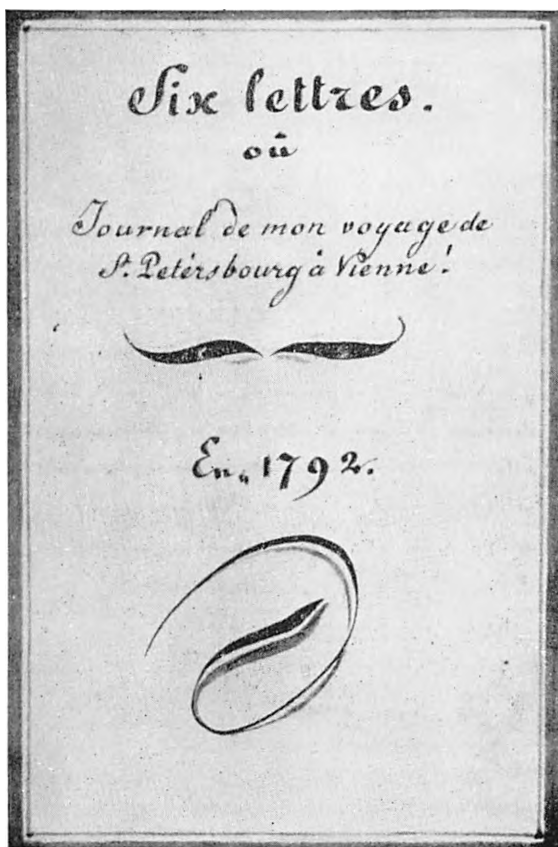 Six lettres.
oû
Journal de mon voyage de
St. Petérsbourg à Vienne!
En, 1792.